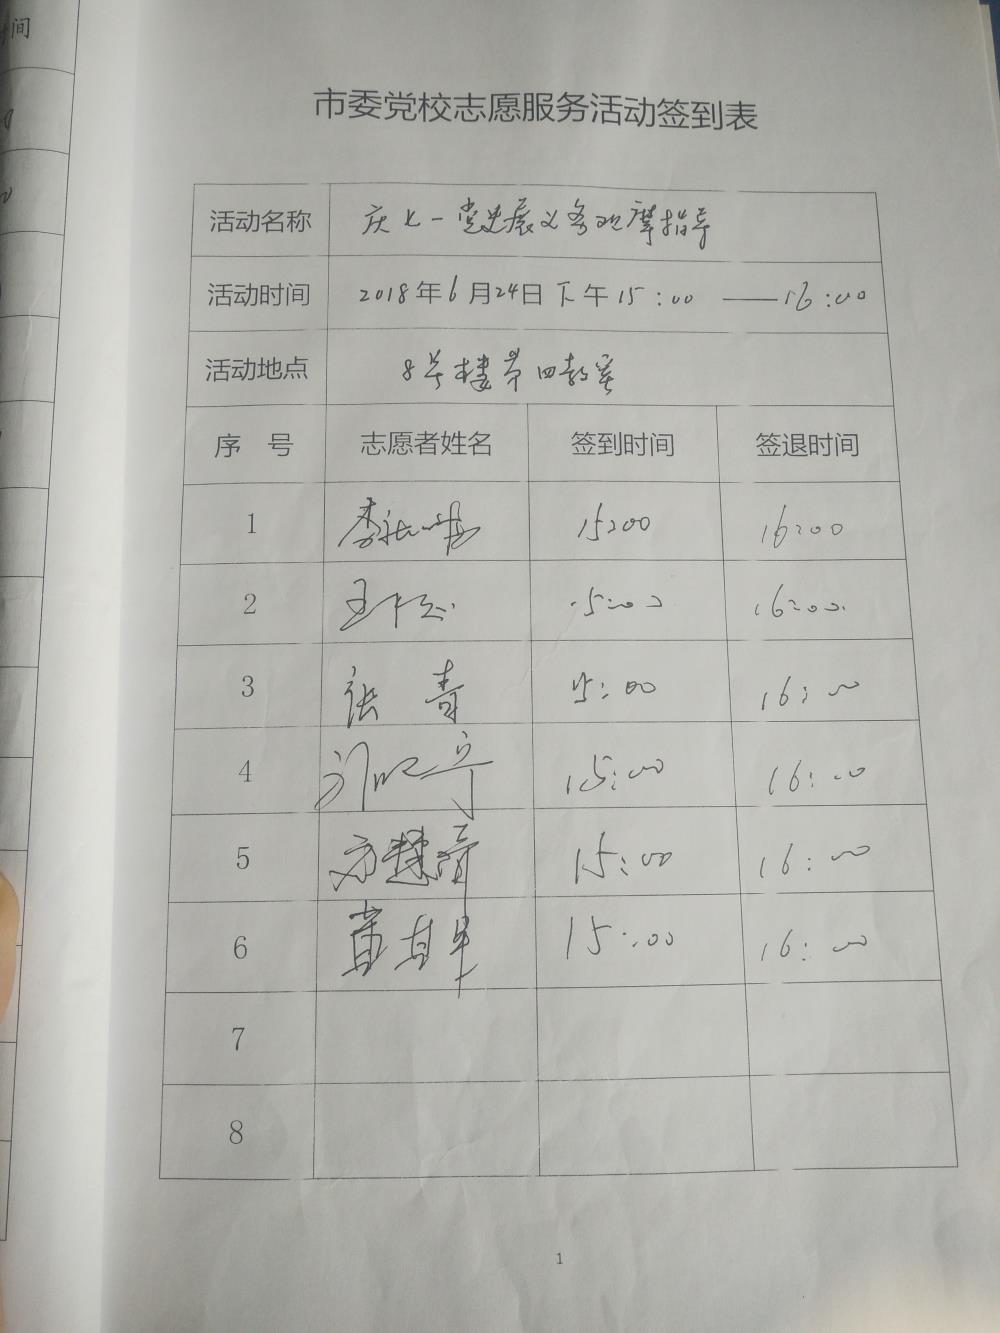 间
市委党校志愿服务活动签到表
活动名称 庆七一党史展义务观摩指导
活动时间 2018年6月24日下午15:00——16:00
活动地点 8号楼第四教室
序 号 志愿者姓名 签到时间 签退时间
1 李 15:00 16:00
2 王 15:00 16:00
3 张青 15:00 16:00
4 15:00 16:00
5 方慧 15:00 16:00
6 黄 15:00 16:00
7
8
1